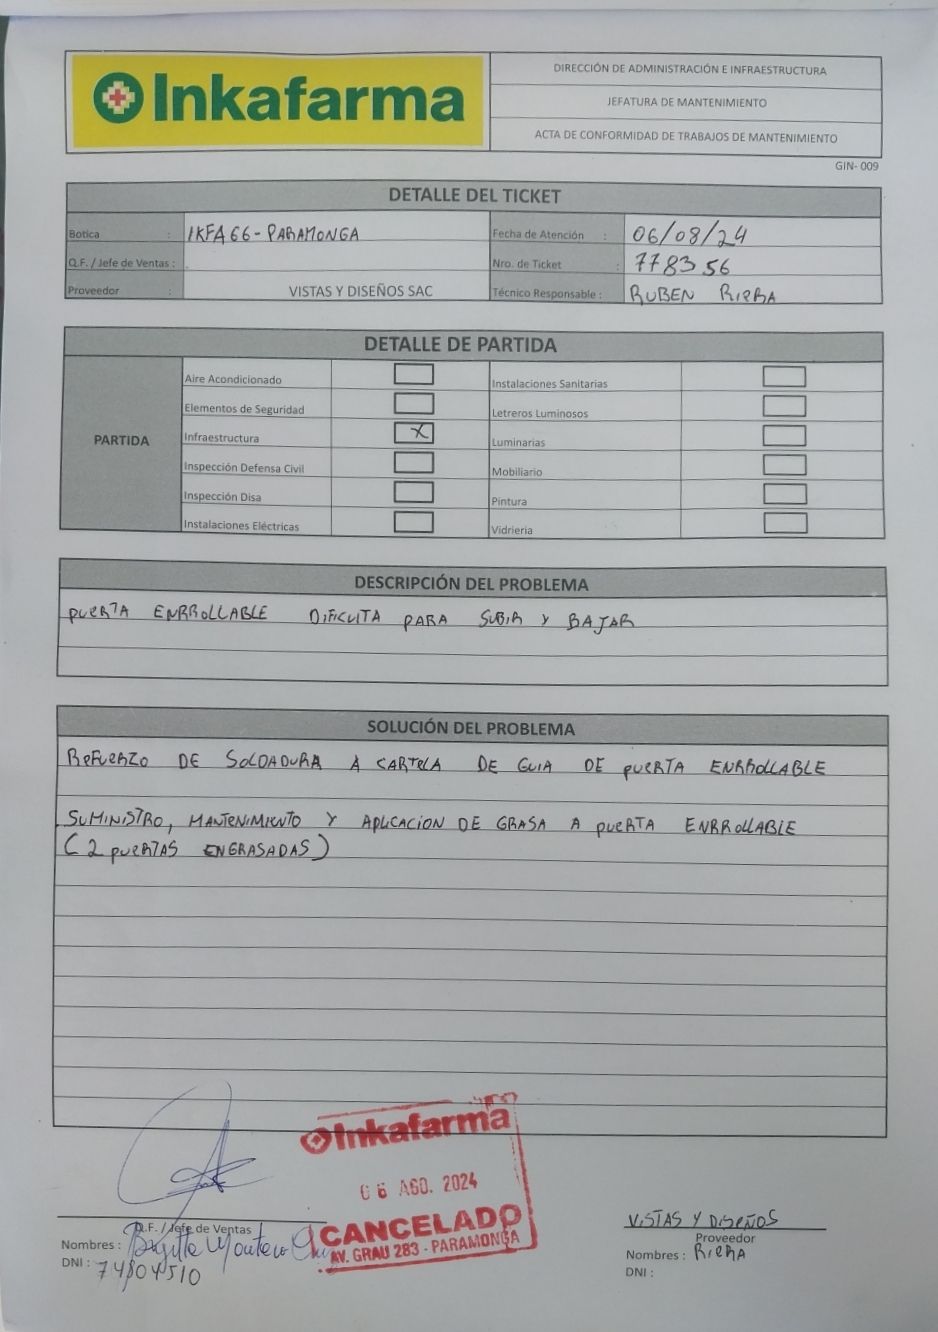 Inkafarma
DIRECCIÓN DE ADMINISTRACIÓN E INFRAESTRUCTURA
JEFATURA DE MANTENIMIENTO
ACTA DE CONFORMIDAD DE TRABAJOS DE MANTENIMIENTO
GIN- 009
DETALLE DEL TICKET
Botica : IKFA66 - PARAMONGA Fecha de Atención : 06/08/24
Q.F. / Jefe de Ventas : Nro. de Ticket : 778356
Proveedor : VISTAS Y DISEÑOS SAC Técnico Responsable : RUBEN RIERA
DETALLE DE PARTIDA
PARTIDA
Aire Acondicionado Instalaciones Sanitarias
Elementos de Seguridad Letreros Luminosos
Infraestructura X Luminarias
Inspección Defensa Civil Mobiliario
Inspección Disa Pintura
Instalaciones Eléctricas Vidrieria
DESCRIPCIÓN DEL PROBLEMA
PUERTA ENRROLLABLE DIFICULTA PARA SUBIR Y BAJAR
SOLUCIÓN DEL PROBLEMA
REFUERZO DE SOLDADURA A CARTELA DE GUIA DE PUERTA ENRROLLABLE
SUMINISTRO, MANTENIMIENTO Y APLICACION DE GRASA A PUERTA ENRROLLABLE
(2 PUERTAS ENGRASADAS)
Inkafarma
06 AGO. 2024
CANCELADO
AV. GRAU 283 - PARAMONGA
Q.F. / Jefe de Ventas
Nombres : Brigitte Montero
DNI : 74804510
VISTAS Y DISEÑOS
Proveedor
Nombres : RIERA
DNI :